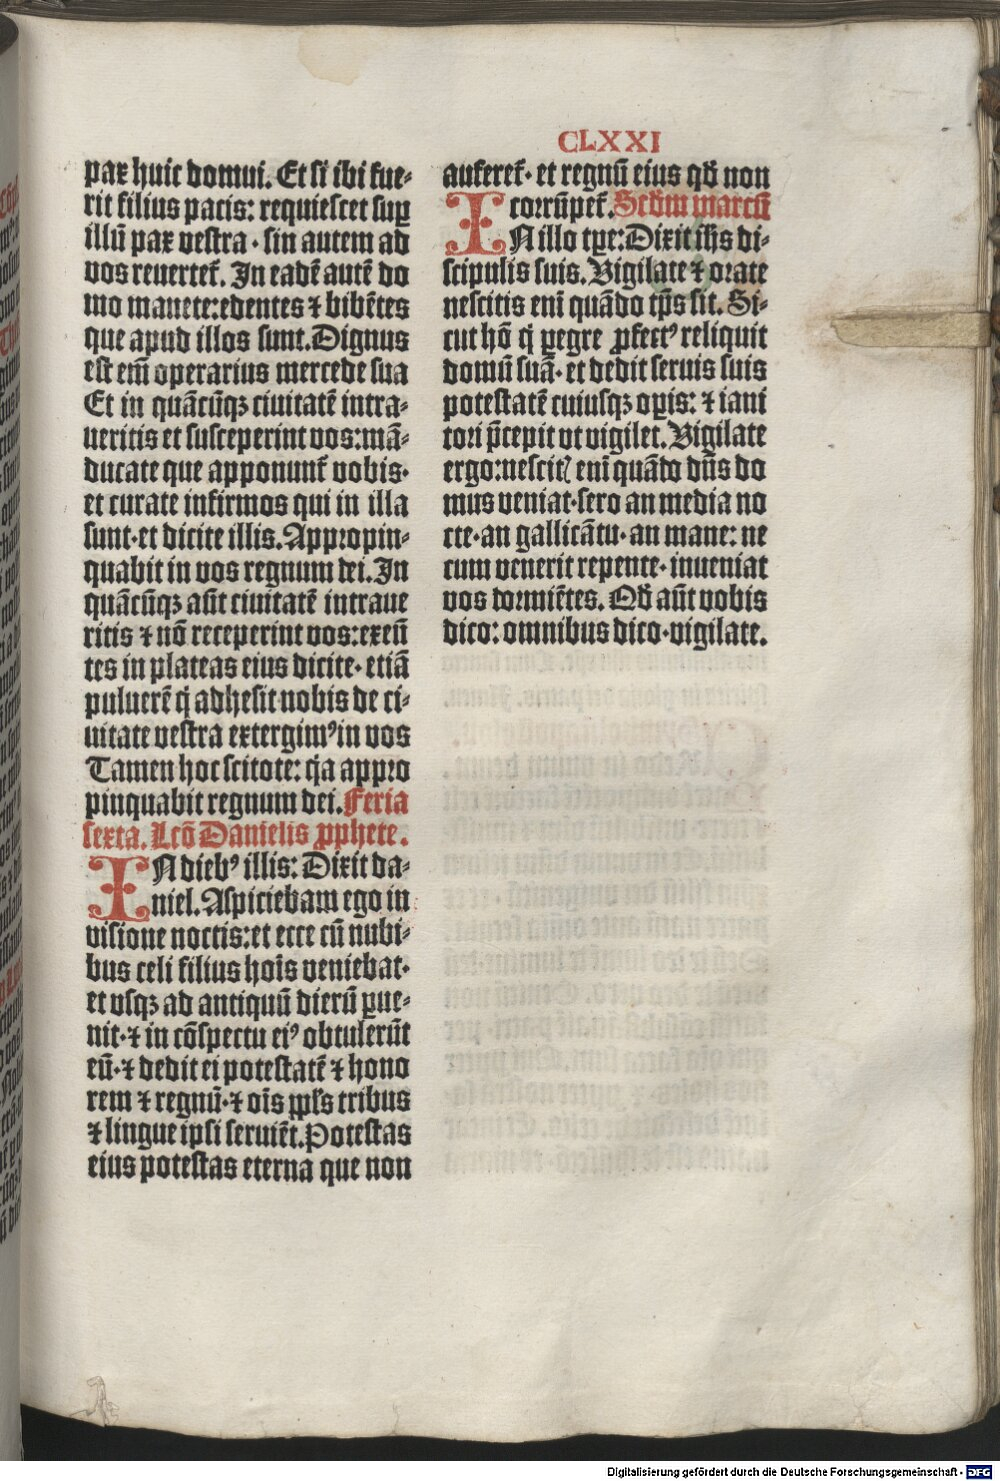 CLXXI
pax huic domui. Et si ibi fue⸗
rit filius pacis: requiescet suꝑ
illū pax vestra · sin autem ad
vos reuertet̃. In eadē autē do
mo manete: edentes ⁊ bibētes
que apud illos sunt. Dignus
est em̄ operarius mercede sua
Et in quācūqꝫ ciuitatē intra⸗
ueritis et susceperint vos: mā⸗
ducate que apponunt̃ vobis·
et curate infirmos qui in illa
sunt· et dicite illis. Appropin⸗
quabit in vos regnum dei. In
quācūqꝫ aūt ciuitatē intraue
ritis ⁊ nō receperint vos: exeū
tes in plateas eius dicite· etiā
puluerē q̇ adhesit nobis de ci⸗
uitate vestra extergimꝰ in vos
Tamen hoc scitote: q̇a appro
pinquabit regnum dei. Feria
sexta. Lcō Danielis ꝓphete.
IN diebꝰ illis: Dixit da⸗
niel. Aspiciebam ego in
visione noctis: et ecce cū nubi⸗
bus celi filius hoīs veniebat·
et vsqꝫ ad antiquū dierū ꝑue⸗
nit· ⁊ in cōspectu eiꝰ obtulerūt
eū· ⁊ dedit ei potestatē ⁊ hono
rem ⁊ regnū· ⁊ oīs ppl̃s tribus
⁊ lingue ipsi seruiēt. Potestas
eius potestas eterna que non
auferet̃· et regnū eius qđ non
corrūpet̃. Scđm marcū
IN illo tꝑe: Dixit ih̄s di⸗
scipulis suis. Vigilate ⁊ orate
nescitis eni quādo tp̄s sit. Si⸗
cut hō q̇ ꝑegre ꝓfectꝰ reliquit
domū suā· et dedit seruis suis
potestatē cuiusqꝫ oꝑis: ⁊ iani
tori p̄cepit vt vigilet. Vigilate
ergo: nescitꝭ eni quādo dn̄s do
mus veniat· sero an media no
cte· an gallicātu· an mane: ne
cum venerit repente· inueniat
vos dormiētes. Qđ aūt vobis
dico: omnibus dico· vigilate.
Digitalisierung gefördert durch die Deutsche Forschungsgemeinschaft - DFG